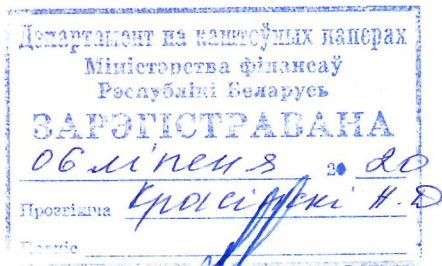 Дэпартамент па каштоўных паперах
Міністэрства фінансаў
Рэспублікі Беларусь
ЗАРЭГІСТРАВАНА
06 ліпеня 2020
Прозвішча Красінскі Н.Д
Подпіс